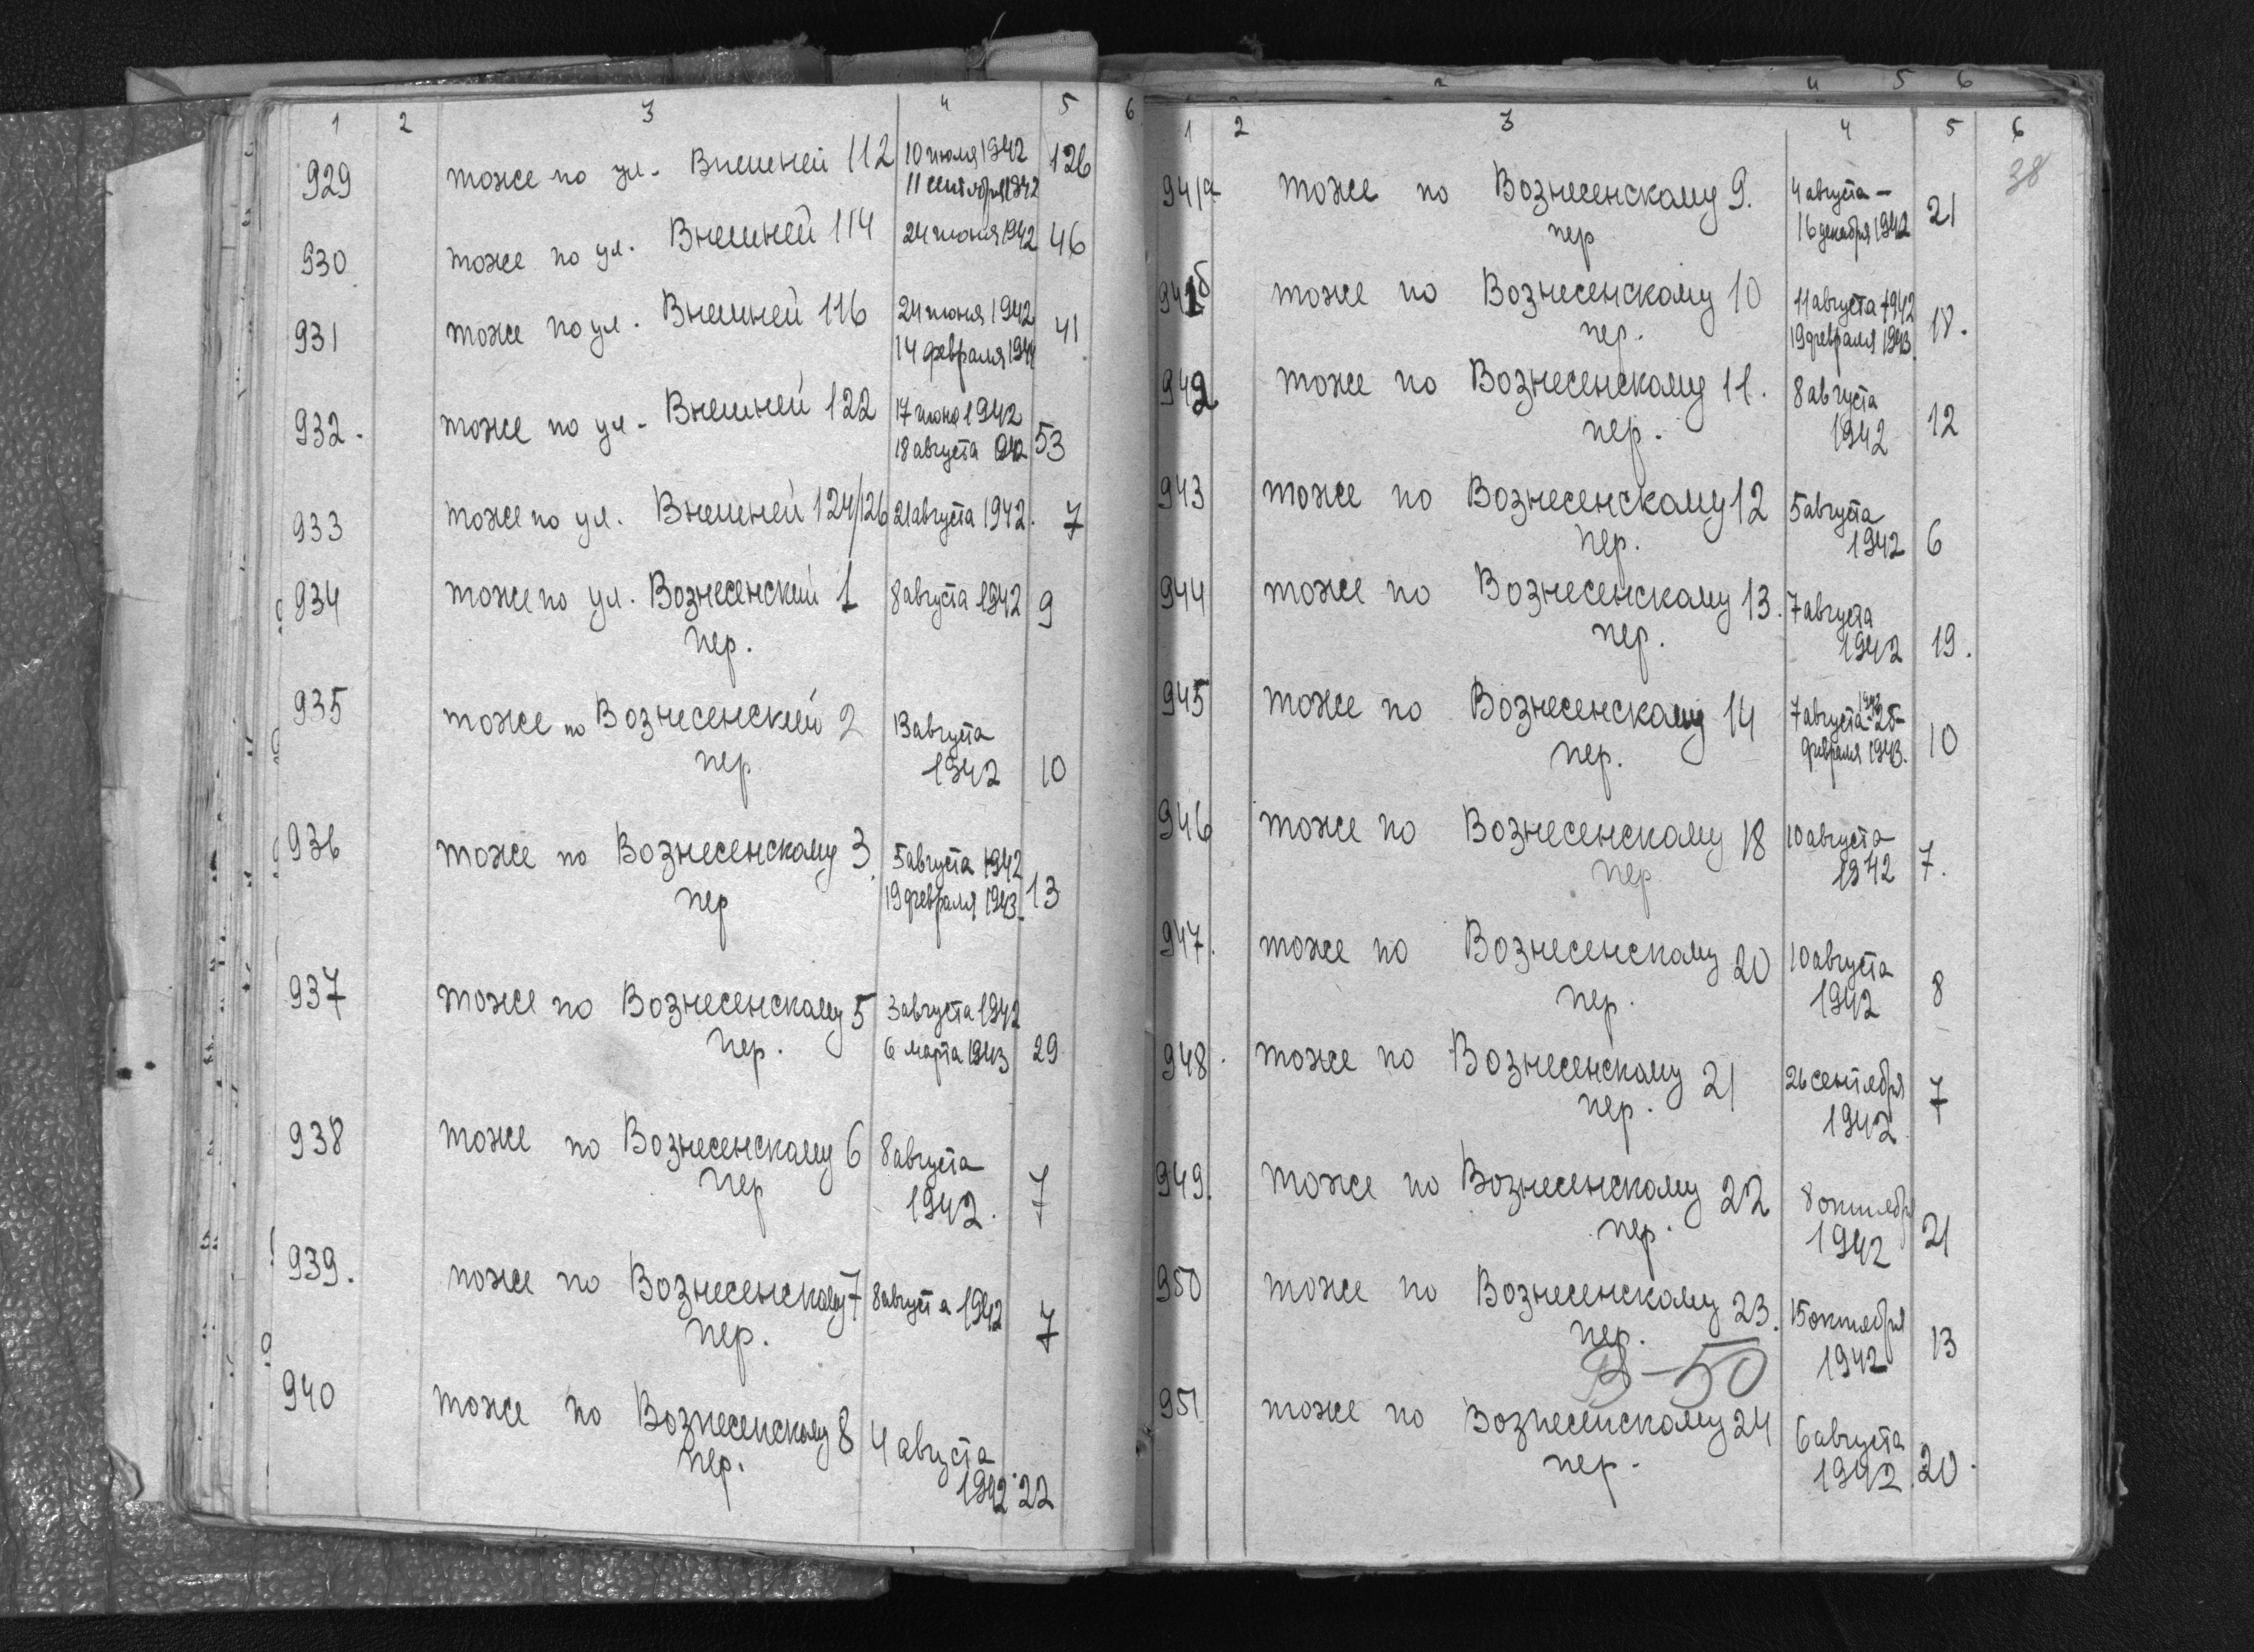 1 2 3 4 5 6
929 тоже по ул. Внешней 112 10 июля 1942 126
11 сентября 1942
930 тоже по ул. Внешней 114 24 июня 1942 46
931 тоже по ул. Внешней 116 24 июня 1942 41
14 февраля 1944
932. тоже по ул. Внешней 122 17 июня 1942 53
18 августа 1942
933 тоже по ул. Внешней 124/126 21 августа 1942. 7
934 тоже по ул. Вознесенский 1 8 августа 1942 9
пер.
935 тоже по Вознесенский 2 13 августа
пер 1942 10
936 тоже по Вознесенскому 3. 5 августа 1942
пер 19 февраля 1943. 13
937 тоже по Вознесенскому 5 3 августа 1942
пер. 6 марта 1943 29
938 тоже по Вознесенскому 6 8 августа
пер 1942. 7
939. тоже по Вознесенскому 7 8 августа 1942 7
пер.
940 тоже по Вознесенскому 8 4 августа
пер. 1942. 22
1 2 3 4 5 6
38
941а тоже по Вознесенскому 9. 4 августа –
пер 16 декабря 1942 21
941б тоже по Вознесенскому 10 11 августа 1942
пер. 19 февраля 1943. 18.
942 тоже по Вознесенскому 11. 8 августа
пер. 1942 12
943 тоже по Вознесенскому 12 5 августа
пер. 1942 6
944 тоже по Вознесенскому 13. 7 августа
пер. 1942 19.
945 тоже по Вознесенскому 14 7 августа 1942 - 25
пер. февраля 1943. 10
946 тоже по Вознесенскому 18 10 августа
пер. 1942 7.
947. тоже по Вознесенскому 20 10 августа
пер. 1942 8
948. тоже по Вознесенскому 21 26 сентября
пер. 1942. 7
949. тоже по Вознесенскому 22 8 октября
пер. 1942 21
950 тоже по Вознесенскому 23. 15 октября
пер. 1942 13
В-50
951 тоже по Вознесенскому 24 6 августа
пер. 1942. 20.